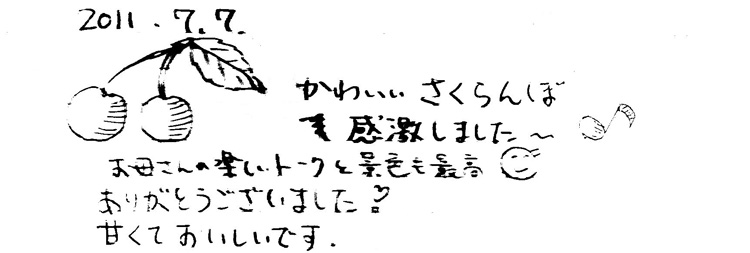 2011.7.7.
かわいい さくらんぼ
感激しました〜
お母さんの楽しいトークと景色も最高
ありがとうございました!
甘くておいしいです.